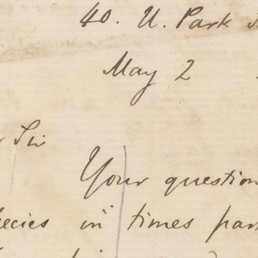 40. U. Park
May 2
Sir
Your question
ecies in times par